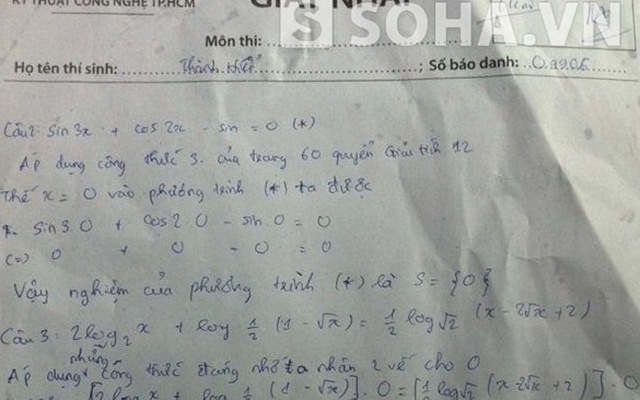 KỸ THUẬT CÔNG NGHỆ TP.HCM
GIẤY NHÁP
SOHA.VN
Môn thi:
Họ tên thí sinh: Thành Hiếu ; Số báo danh: 0.99.05
Câu 2: sin 3x + cos 2x - sin = 0 (*)
Áp dụng công thức 3. của trang 60 quyển Giải tích 12
Thế x = 0 vào phương trình (*) ta được
sin 3.0 + cos 2.0 - sin.0 = 0
(=) 0 + 0 - 0 = 0
Vậy nghiệm của phương trình (*) là S = {0}
Câu 3: 2log₂ x + log ½ (1 - √x) = ½ log√2 (x - 2√x + 2)
những
Áp dụng công thức đáng nhớ ta nhân 2 vế cho 0
[2log x + log ½ (1 - √x)] . 0 = [½ log√2 (x - 2√x + 2)] . 0